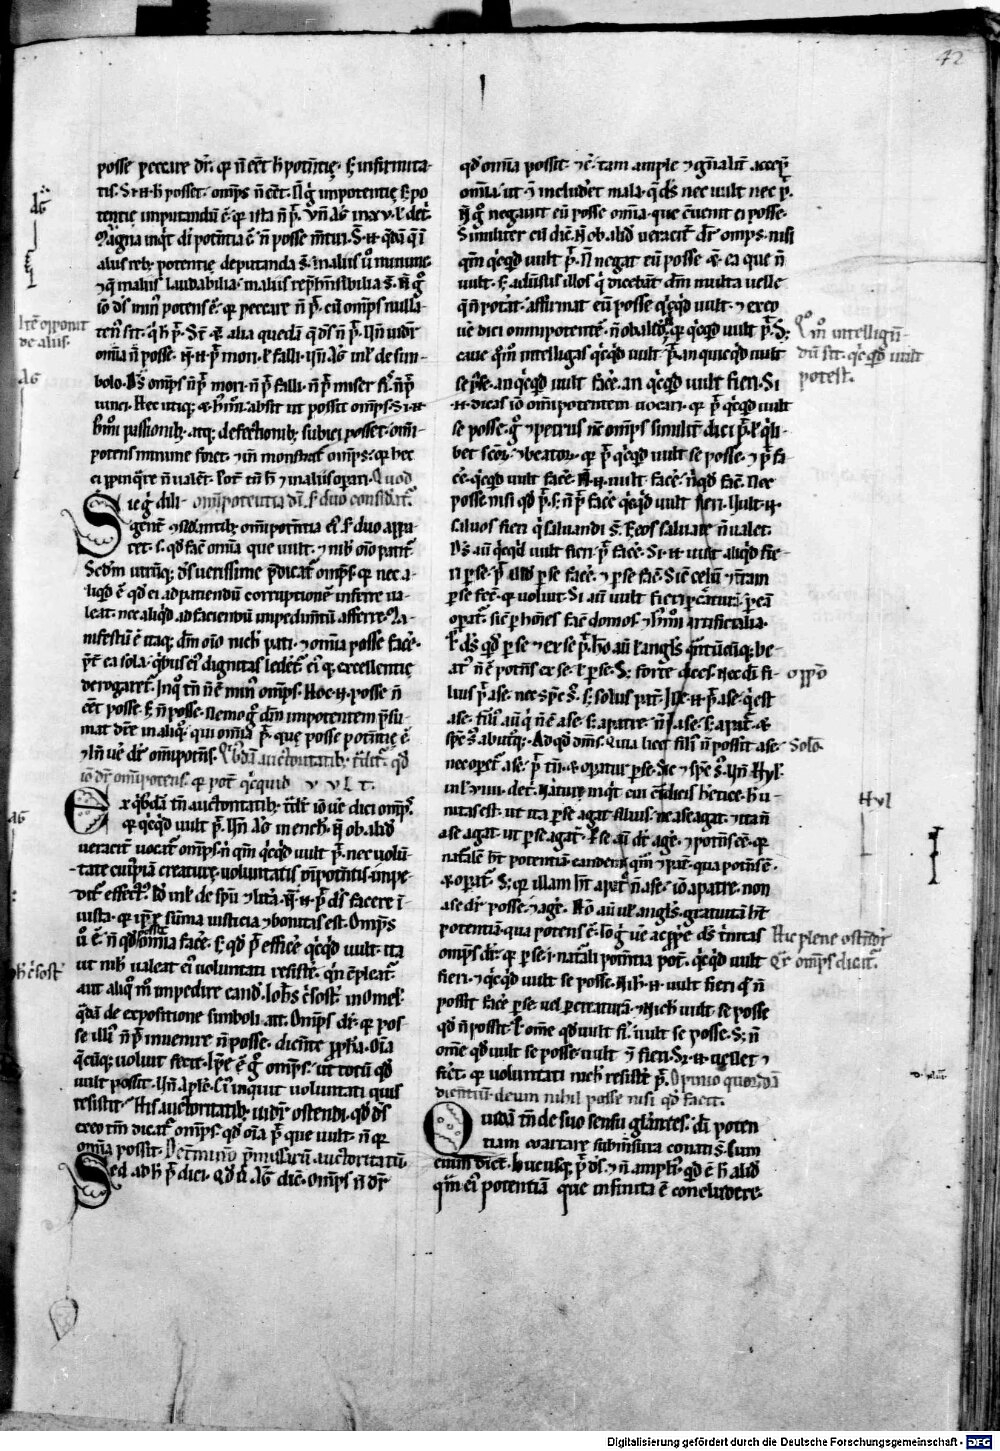 42
posse peccare dr̄. qꝛ n̄ eēt h̄ potn̄tię. ſꝫ infirmita-
tis. Si .n. h̄ posset. omp̄s n̄ eēt. N̄ g̊ impotentię ſꝫ po
tentię imputandū ē. qꝛ ista n̄ p̄t. Vn̄ Aḡ in xv. l. de t̄.
Magna inq̇t di potn̄tia ē n̄ posse m̄tiri. S̄t .n. q̄dā q̄ ī
aliis reb; potentię deputanda s̄. in aliis ū minime.
⁊ q̄ in aliis laudabilia. in aliis rep̄hēsibilia s̄. N̄ g̊
iō ds̄ min᾽ potens ē. qꝛ peccare n̄ p̄t. cū omp̄s nulla-
ten᾽ sit. q̇ h̄ p̄t. S̄t ⁊ alia quedā q̄ ds̄ n̄ p̄t. Vn̄ uidet᾽
omīa n̄ posse. N̄ .n. p̄t mori. l falli. Vn̄ Aḡ in l. de sim-
bolo. Ds̄ omp̄s n̄ p̄t mori. n̄ p̄t falli. n̄ p̄t miser fi᾽i. n̄ p̄t
uinci. Hec utiq; ⁊ h᾽mōi absit ut possit omp̄s. Si .n.
h᾽mōi passionib; atq; defectionib; subici posset. omī-
potens minime foret. ⁊ in monstrat᾽ omp̄s. qꝛ hec
ei p̄pinq̄re n̄ ualēt. Pot᾽ tn̄ h̄ ⁊ in aliis opari. Quod
omīpotentia di᾽ sꝫ duo considat᾽.
Sic g̊ dili-
gent᾽ ⁊sidantib; omīpotn̄tia ei᾽ sꝫ duo appa-
ret. s. qd̄ facē omīa que uult. ⁊ nih᾽ oīo patit᾽.
Scd̄m utrūq; ds̄ uerissime p̄dicat᾽ omp̄s. qꝛ nec a-
liqd̄ ē qd̄ ei ad patiendū corruptionē inferre ua-
leat. nec aliqd̄ ad faciendū impedim̄tū afferre. Ma-
nifestū ē itaq; dm̄ oīo nich᾽ pati. ⁊ omīa posse facē.
p̄t ea sola. q̇bus ei᾽ dignitas ledet᾽. ei᾽q; excellentię
derogaret᾽. In q̊ tn̄ n̄ ē min᾽ omp̄s. Hoc .n. posse n̄
eēt posse. ſꝫ n̄ posse. Nemo g̊ dm̄ impotentem p̄su-
mat dicē in aliq̊. qui omīa p̄t. quę posse potn̄tię ē.
⁊ in᾽ ue᾽ dr̄ omīpotn̄s. Q̇bdā auctoritatib; tradit᾽. qd̄
iō dr̄ omīpotens. qꝛ pot᾽ q̇cquid vvlt.
Ex q̇bdā tn̄ auctoritatib; tdit᾽ iō ue᾽ dici omp̄s.
qꝛ q̇cq̇d uult p̄t. Vn̄ Aḡ in ench᾽. N̄ ob aliud
ueracit᾽ uocat᾽ omp̄s. n̄ qm̄ q̇cq̇d uult p̄t. nec volū-
tate cui᾽piā creaturę. uoluntatis omīpotn̄tis. impe-
dit᾽ effect᾽. Id᾽ in l. de sp̄u ⁊ litt᾽a. N̄ .n. p̄t ds̄ facere ī
iusta. qꝛ ip̄e sūma iusticia ⁊ bonitas est. Omp̄s
ū ē. n̄ qd̄ possit omīa facē. ſꝫ qd̄ p̄t efficē q̇cq̇d uult. ita
ut nih᾽ ualeat ei᾽ voluntati resistē. q̇n ⁊pleat᾽.
aut aliq̊ mō impedire eand᾽. Ioh̄s c᾽sost᾽ in omel᾽.
q̄dā de expositione simboli ait. Omp̄s dr̄. qꝛ pos-
se illi᾽ n̄ p̄t inuenire n̄ posse. dicēte p̄ph̄a. Oīa
q̄cūq; voluit fecit. Ip̄e ē g̊ omp̄s. ut totū qd̄
uult possit. Vn̄ aplē. Cui᾽ inquit uoluntati quis
resistit. His auctoritatib; uidr̄ ostendi. qd̄ ds̄
ex eo tm̄ dicat᾽ omp̄s. qd̄ oīa p̄t que uult. n̄ qꝛ
omīa possit. Det᾽minō p̄missarū auctoritatū.
Sed ad h̄ p̄t dici. qd̄ ū Aḡ dic᾽. omp̄s n̄ dr̄
qd̄ omīa possit. ⁊c᾽. tam ample ⁊ gn̄alit᾽ accep̄
omīa. ut ⁊ includet mala. q̄ ds̄ nec uult nec p̄t.
N̄ g̊ negauit eū posse omīa. que ⁊uenit ei posse.
Similiter cū dic᾽. N̄ ob aliud ueracit᾽ dr̄ omps. nisi
qm̄ q̇cq̇d uult p̄t. N̄ negat eū posse ⁊ ea que n̄
uult. ſꝫ adūsus illos q̇ dicebāt dm̄ multa uelle
q̄ n̄ potat᾽. affirmat eū posse q̇cq̇d uult. ⁊ ex eo
ue᾽ dici omnipotentē. n̄ ob aliud qꝛ q̇cq̇d uult p̄t. S;
caue q̊m᾽ intelligas q̇cq̇d uult p̄t. an quicq̇d uult
se posse. an q̇cq̇d uult facē. an q̇cq̇d uult fieri. Si
.n. dicas iō omīpotentem uocari. qꝛ p̄t q̇cq̇d uult
se posse. g̊ ⁊ petrus n̄c omp̄s similit᾽ dici p̄t. l q̇li-
bet scōr᾽ ⁊ beator᾽. qꝛ p̄t q̇cq̇d uult se posse. ⁊ p̄t fa-
cē. q̇cq̇d uult facē. N̄ .n. uult facē. n̄ qd̄ fac᾽. Nec
posse nisi qd̄ p̄t. ſꝫ n̄ p̄t facē q̇cq̇d uult fieri. Uult .n.
saluos fieri q̇ saluandi s̄. ſꝫ eos saluare n̄ ualet.
Ds̄ aū q̇cq̇d uult fieri p̄t facē. Si .n. uult aliq̇d fie-
ri p se. p̄t illud p se facē. ⁊ p se fac᾽. Sic᾽ celū ⁊ t᾽ram
p se fec᾽. qꝛ voluit. Si aū uult fieri p c᾽aturā. p eā
opat᾽. sic᾽ p hoīes fac᾽ domos. ⁊ h᾽mōi artificialia.
l ds̄ qd̄ p se ⁊ ex se p̄t. hō aū l angls᾽. q̄ntūcūq; be-
at᾽ n̄ ē potn̄s ex se. l p se. S; forte dices. Nec di fi-
lius p̄t a se. nec sp̄c s̄. ſꝫ solus pat᾽. Ille .n. p̄t a se. q̇ est
a se. fili᾽ aū q̇ n̄ ē a se. ſꝫ a patre. n̄ p̄t a se. ſꝫ a pat᾽. ⁊
sp̄c s̄. ab utq̇;. Ad qd̄ dm̄s. Quia licet fili᾽ n̄ possit a se.
nec opet᾽ a se. p̄t tn̄ ⁊ opatur p se. Sic ⁊ sp̄c s̄. Vn̄ Hyl.
in l. viiii. de t᾽. Naturę inq̇t cui ⁊t᾽dicis h᾽etice. h᾽ u-
nitas est. ut ita p se agat filius. ne a se agat. ⁊ ita n̄
a se agat. ut p se agat᾽. P se aū dr̄ agē. ⁊ potn̄s eē. qꝛ
nat᾽alē h̄t potentiā. eandem qm̄ ⁊ pat᾽. qua potn̄s ē.
⁊ opat᾽. S; qꝛ illam h̄t a pat᾽ n̄ a se. iō a patre. non
a se dr̄ posse. ⁊ agē. Hō aū uł angls᾽. gratuitā h̄t
potentiā. qua potens ē. Io g̊ ue᾽ ac p̄p᾽e ds̄ t᾽nitas
omps dr̄. qꝛ p se. i. nat᾽ali potn̄tia pot᾽. q̇cq̇d uult
fieri. ⁊ q̇cq̇d uult se posse. Nih᾽ .n. uult fieri qd̄ n̄
possit facē p se. uel p creaturā. ⁊ nich᾽ uult se posse
qd̄ n̄ possit. l ome qd̄ uult fi᾽i. uult se posse. S; n̄
ome qd̄ uult se posse. uult ⁊ fieri. Si .n. uellet ⁊
fi᾽et. qꝛ voluntati nich᾽ resistē p̄t. Opinio quorūdā
dicentiū. deum nihil posse nisi qd̄ facit.
Quidā tn̄ de suo sensu gl᾽antes. di᾽ poten
tiam coartare sub m̄sura conati s̄. Cum
enim dicit. hucusq; p̄t ds̄. ⁊ n̄ ampli᾽. qd̄ ē h̄ aliud
q̄m ei᾽ potentiā que infinita ē concludere.
Aḡ
Itē opponit
de aliis.
Aḡ
Aḡ
Ioh̄ c᾽sost᾽
Q̊m᾽ intellign̄-
dū sit. q̇cq̇d uult
potest.
oppō
Solō.
Hyl
Hic plene ostēdit᾽
qr᾽ omp̄s dicit᾽.
Digitalisierung gefördert durch die Deutsche Forschungsgemeinschaft - DFG